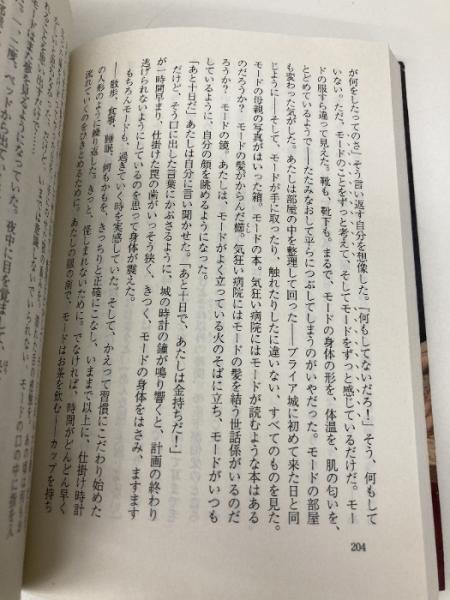 が何をしたってのさ」そう言い返す自分を想像した。「何もしてないだろ！」そう、何もして
いない。ただ、モードのことをずっと考えて、そしてモードをずっと感じているだけだ。モー
ドの服すら違って見えた。靴も、靴下も。まるで、モードの身体の形を、体温を、肌の匂いを、
とどめているようで――たたみなおして平らにつぶしてしまうのがいやだった。モードの部屋
も変わった気がした。あたしは部屋の中を整理して回った――ブライア城に初めて来た日と同
じように――そして、モードが手に取ったり、触れたりしたに違いない、すべてのものを見た。
モードの母親の写真がはいった箱。モードの本。気狂い病院にはモードが読むような本はある
のだろうか？　モードの髪がからんだ櫛。気狂い病院にはモードの髪を結う世話係がいるのだ
ろうか？　モードの鏡。あたしは、モードがよく立っている火のそばに立ち、モードがいつも
しているように、自分の顔を眺めるようになった。
「あと十日だ」あたしは自分に言い聞かせた。「あと十日で、あたしは金持ちだ！」
だけど、そう口に出した言葉にかぶさるように、城の時計の鐘が鳴り響くと、計画の終わり
が一時間早まり、仕掛けた罠の歯がいっそう狭く、きつく、モードの身体をはさみ、ますます
逃げられないようにしているのを思って身体が震えた。
もちろんモードも、過ぎていく時を実感していた。そして、かえって習慣にこだわり始めた
――散歩、食事、睡眠、何もかもを、きっちりと正確にこなし、いままで以上に、仕掛け時計
の人形のように繰り返した。きっと、怪しまれないために。でなければ、時間がどんどん早く
流れていくのを引きとめるために。あたしの眼の前で、モードはお茶を飲む――カップを持ち
204